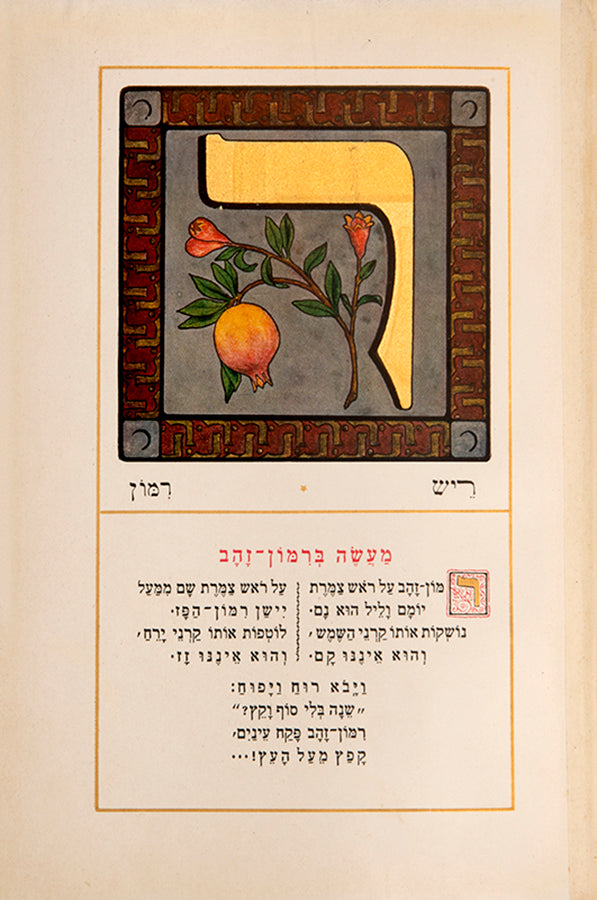 ר ר
ר
ר ר
רֵישׁ רִמּוֹן
מַעֲשֶׂה בְּרִמּוֹן־זָהָב
רִמּוֹן־זָהָב עַל רֹאשׁ צַמֶּרֶת
יוֹמָם וָלֵיל הוּא נָם.
נוֹשְׁקוֹת אוֹתוֹ קַרְנֵי הַשֶּׁמֶשׁ,
וְהוּא אֵינֶנּוּ קָם.
עַל רֹאשׁ צַמֶּרֶת שָׁם מִמַּעַל
יִישַׁן רִמּוֹן־הַפָּז.
לוֹטְפוֹת אוֹתוֹ קַרְנֵי יָרֵחַ,
וְהוּא אֵינֶנּוּ זָז.
וַיָּבֹא רוּחַ וַיָּפוּחַ:
„שֵׁנָה בְּלִי סוֹף וָקֵץ?“
רִמּוֹן־זָהָב פָּקַח עֵינַיִם,
קָפַץ מֵעַל הָעֵץ!...